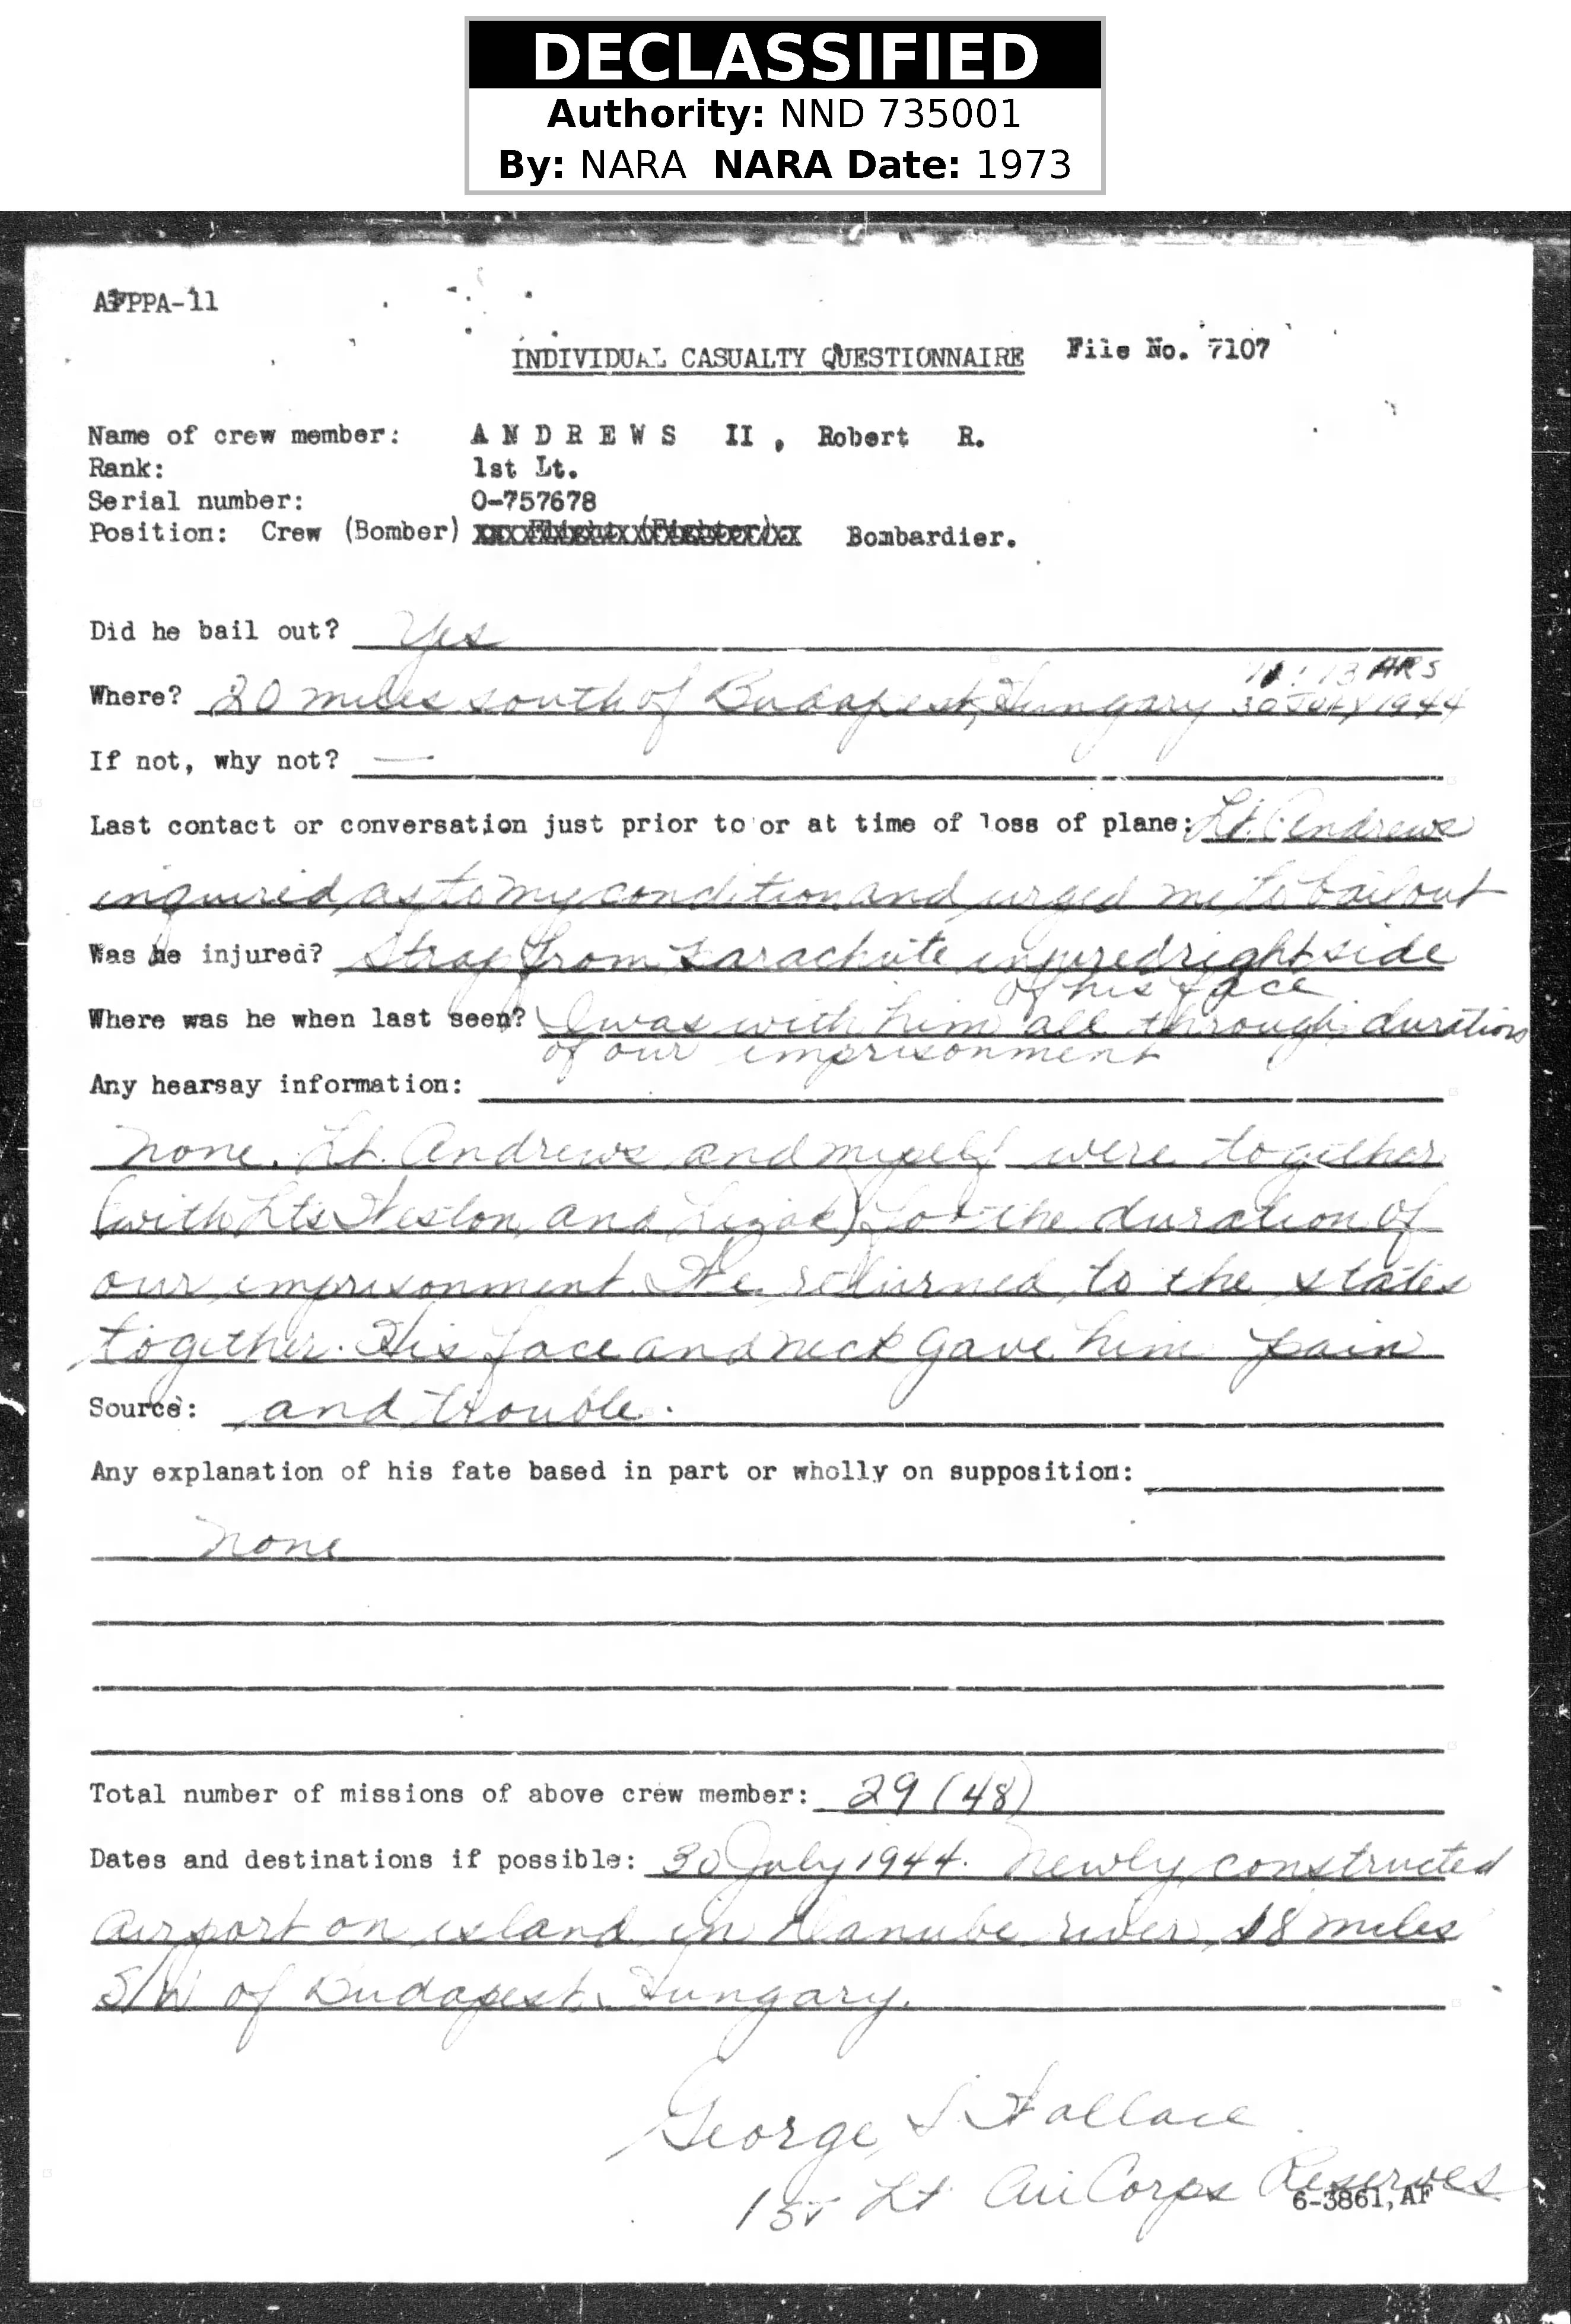 DECLASSIFIED
Authority: NND 735001
By: NARA NARA Date: 1973
AFPPA-11
INDIVIDUAL CASUALTY QUESTIONNAIRE File No. 7107
Name of crew member: A N D R E W S II , Robert R.
Rank: 1st Lt.
Serial number: O-757678
Position: Crew (Bomber) Bombardier.
Did he bail out? Yes
HRS
Where? 20 miles south of Budapest, Hungary 30 July 1944
If not, why not? —
Last contact or conversation just prior to or at time of loss of plane: Lt. Andrews
inquired as to my condition and urged me to bailout
Was he injured? Strap from parachute injured right side
of his face
Where was he when last seen? I was with him all through duration
of our imprisonment
Any hearsay information:
None. Lt. Andrews and myself were together
(with Lts and ) for the duration of
our imprisonment. We returned to the states
together. His face and neck gave him pain
Source: and trouble.
Any explanation of his fate based in part or wholly on supposition:
None
Total number of missions of above crew member: 29 (48)
Dates and destinations if possible: 30 July 1944. Newly constructed
airport on island in Danube river, 18 miles
S/W of Budapest, Hungary.
George S Wallace
1st Lt Air Corps Reserves
6-3861, AF